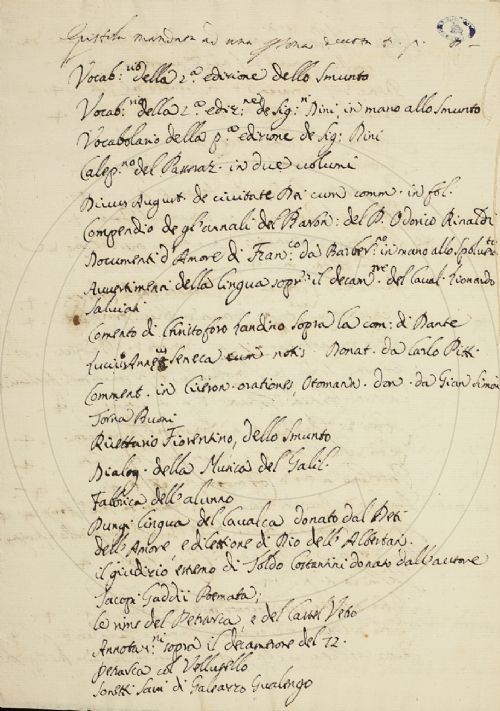 Epistola mandata ad una psona decta
Vocab:rio della 2.a edizione dello Smunto
Vocab:rio della 2.a ediz:ne de Sig:ri Dini, in mano allo Smunto
Vocabolario della p.a edizione de Sig: Dini
Calep:no del Passeraz. in due volumi
Divus August. de civitate Dei cum comm. in fol.
Compendio de gl'annali del Baron: del P. Odorico Rinaldi
Documenti d'Amore di Fran:co da Barber:no in mano allo Spolver:
Avvertimenti della lingua sopr: il decam:ne del Caval. Lionardo
Salviati
Comento di Christoforo Landino sopra la com: di Dante
Lucius Anneus Seneca cum notis Donat. da Carlo Pitt.
Comment. in Ciceron. orationes, Otomann. don. da Gian Simon
Torna Buoni
Ricettario Fiorentino, dello Smunto
Dialog. della Musica del Galil.
Fabbrica dell'alunno
Pungi lingua del Cavalca donato dal Peti
dell'Amore, e dilettione di Dio dell'Albertan.
il giuditio estremo di Toldo Costantini donato dall'autore
Jacopi Gaddii Poemata;
le rime del Petrarca, e del Castel Vetro
Annotaz:ni sopra il decamerone del 72.
Petrarca col Vellutello
Sonetti Savi di Galeazzo Gualengo